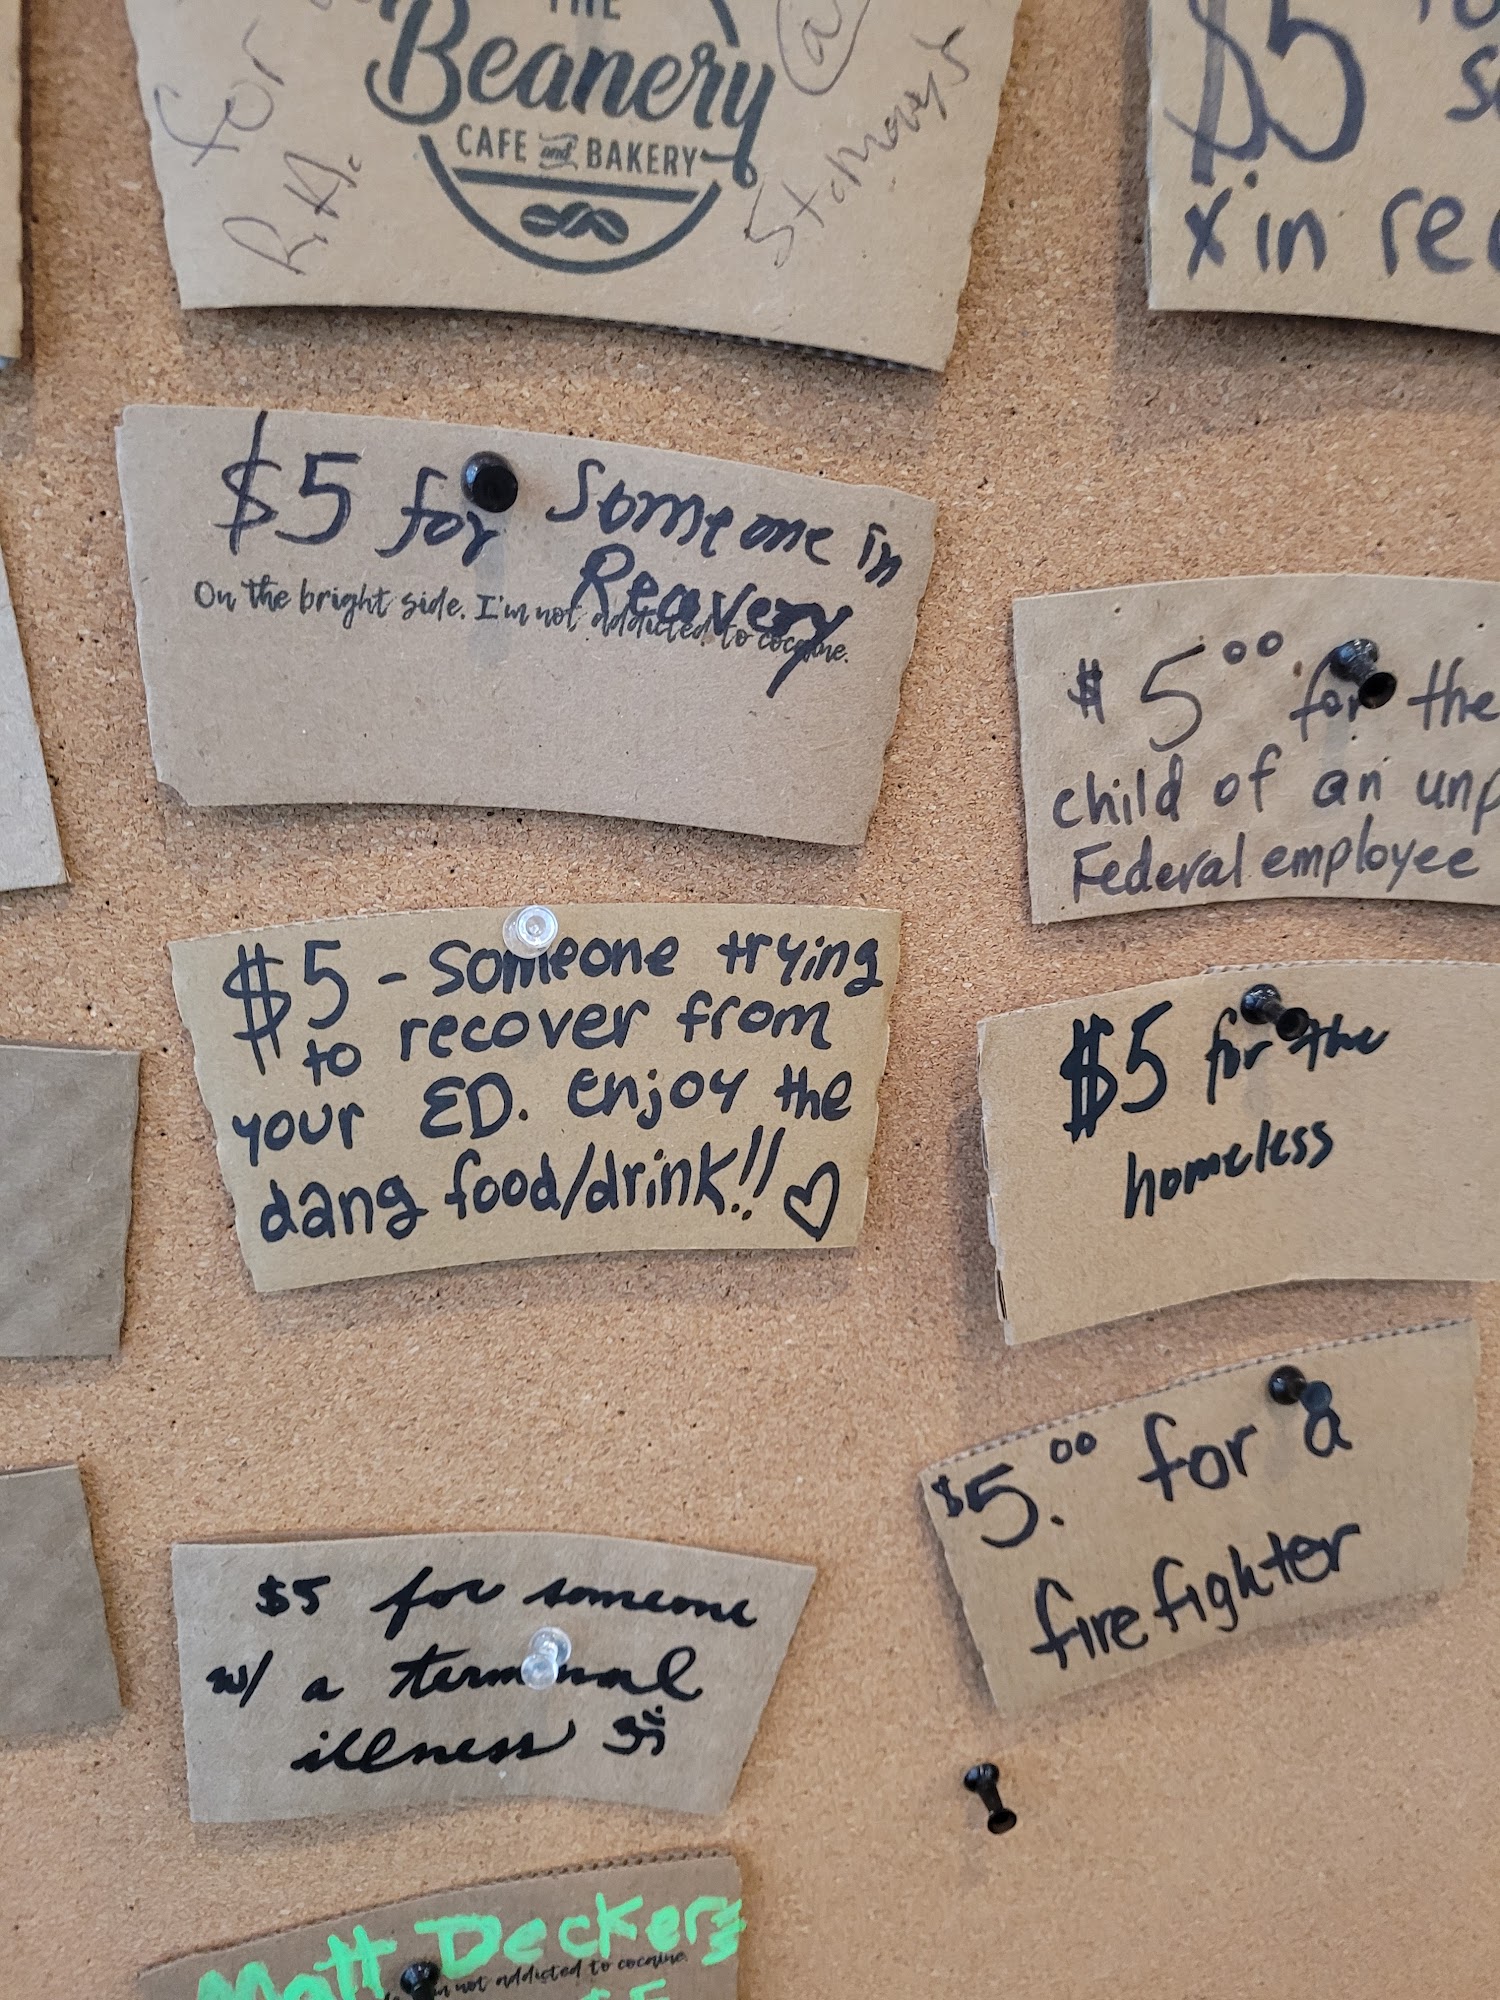 THE
Beanery
CAFE and BAKERY
for
R.H.
@
$5
x in
$5 for someone in
Recovery
On the bright side. I'm not addicted to cocaine.
$5.00 for the
child of an
Federal employee
$5 - someone trying
to recover from
your ED. enjoy the
dang food/drink!! ♡
$5 for the
homeless
$5.00 for a
firefighter
$5 for someone
w/ a terminal
illness
Matt Deckers
not addicted to cocaine.